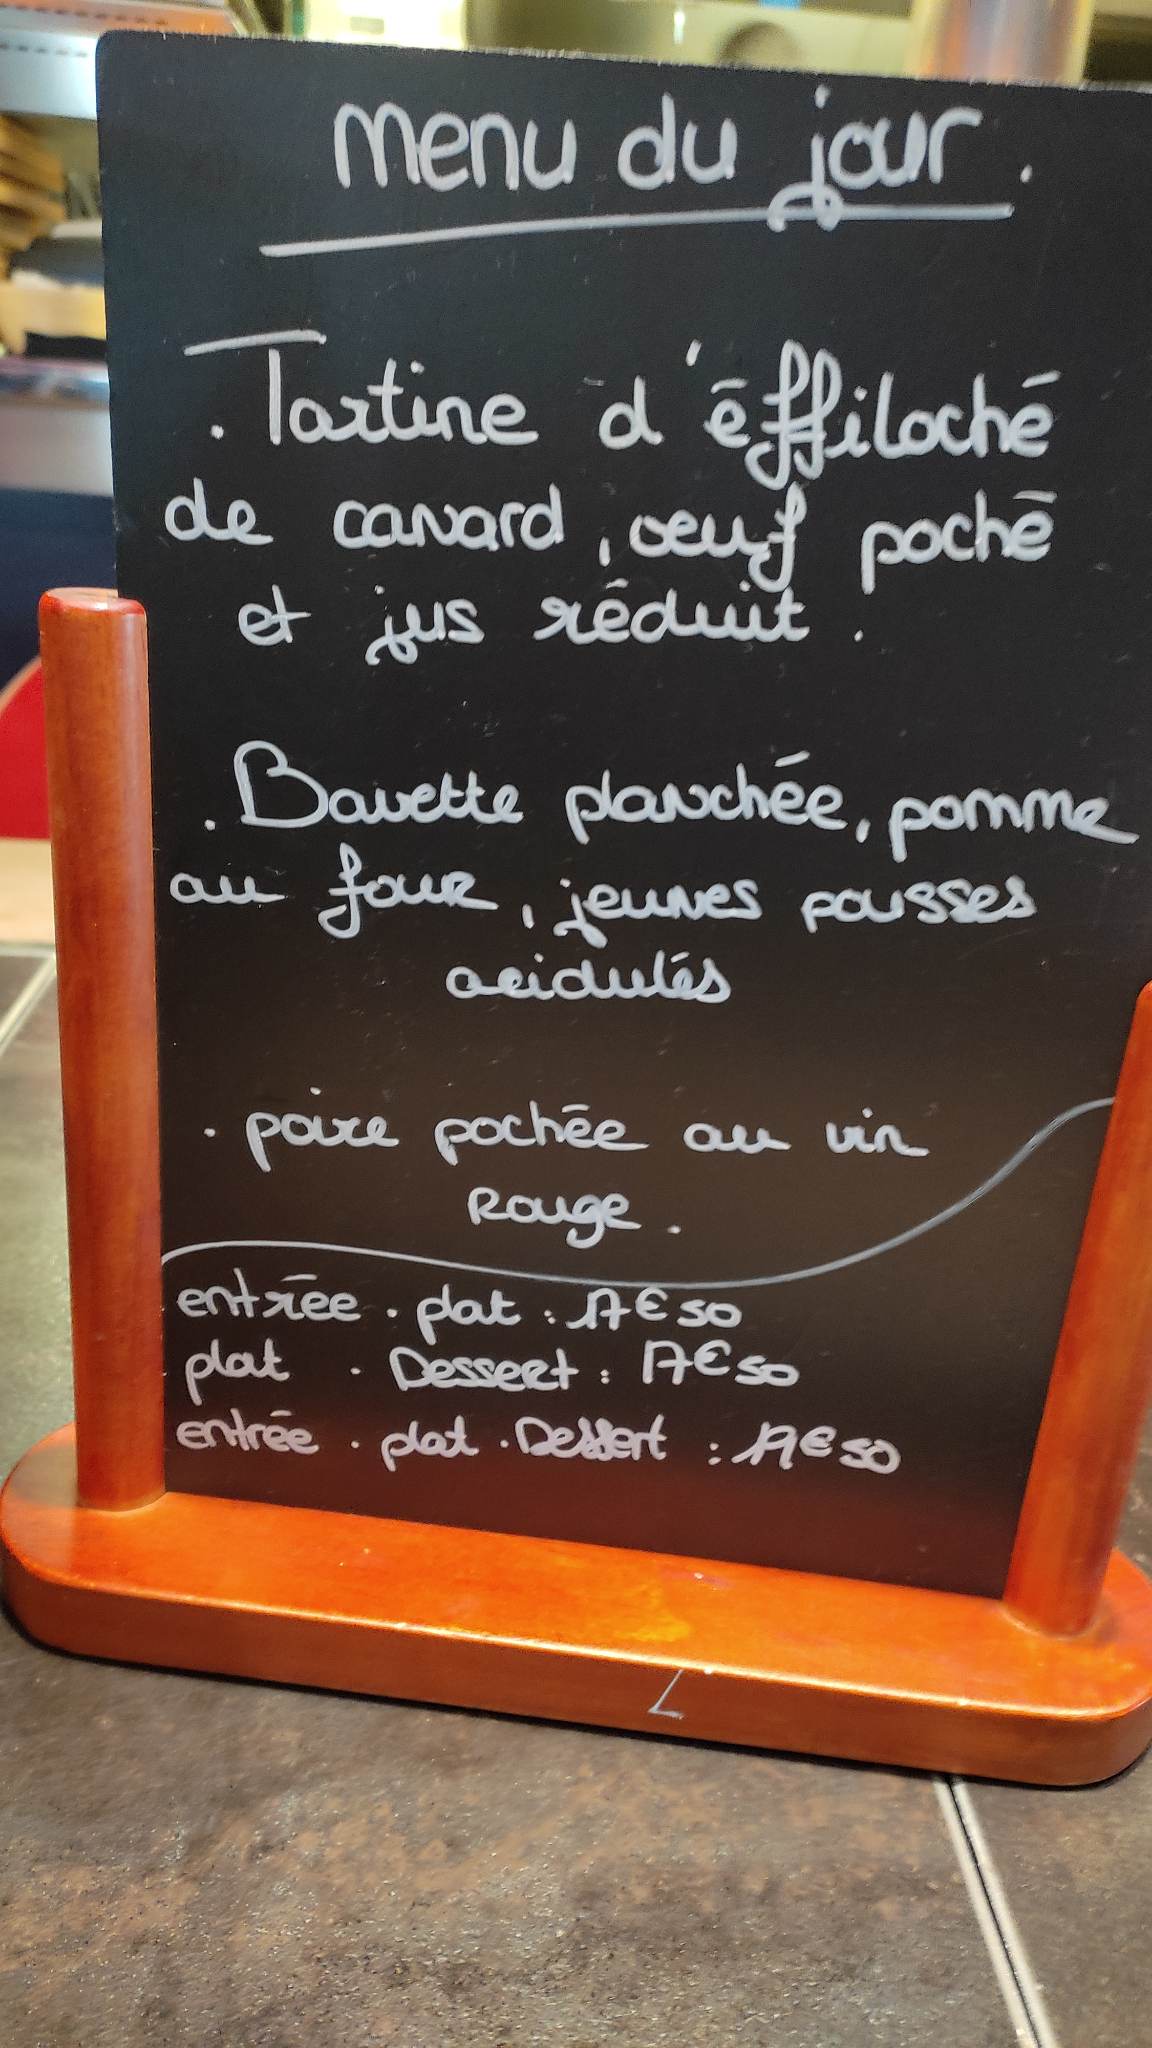 Menu du jour.
. Tartine d'éffiloché
de canard, oeuf poché
et jus réduit.
. Bavette planchée, pomme
au four, jeunes pousses
acidulés
. poire pochée au vin
Rouge.
entrée . plat : 17€50
plat . Dessert : 17€50
entrée . plat . Dessert : 19€50